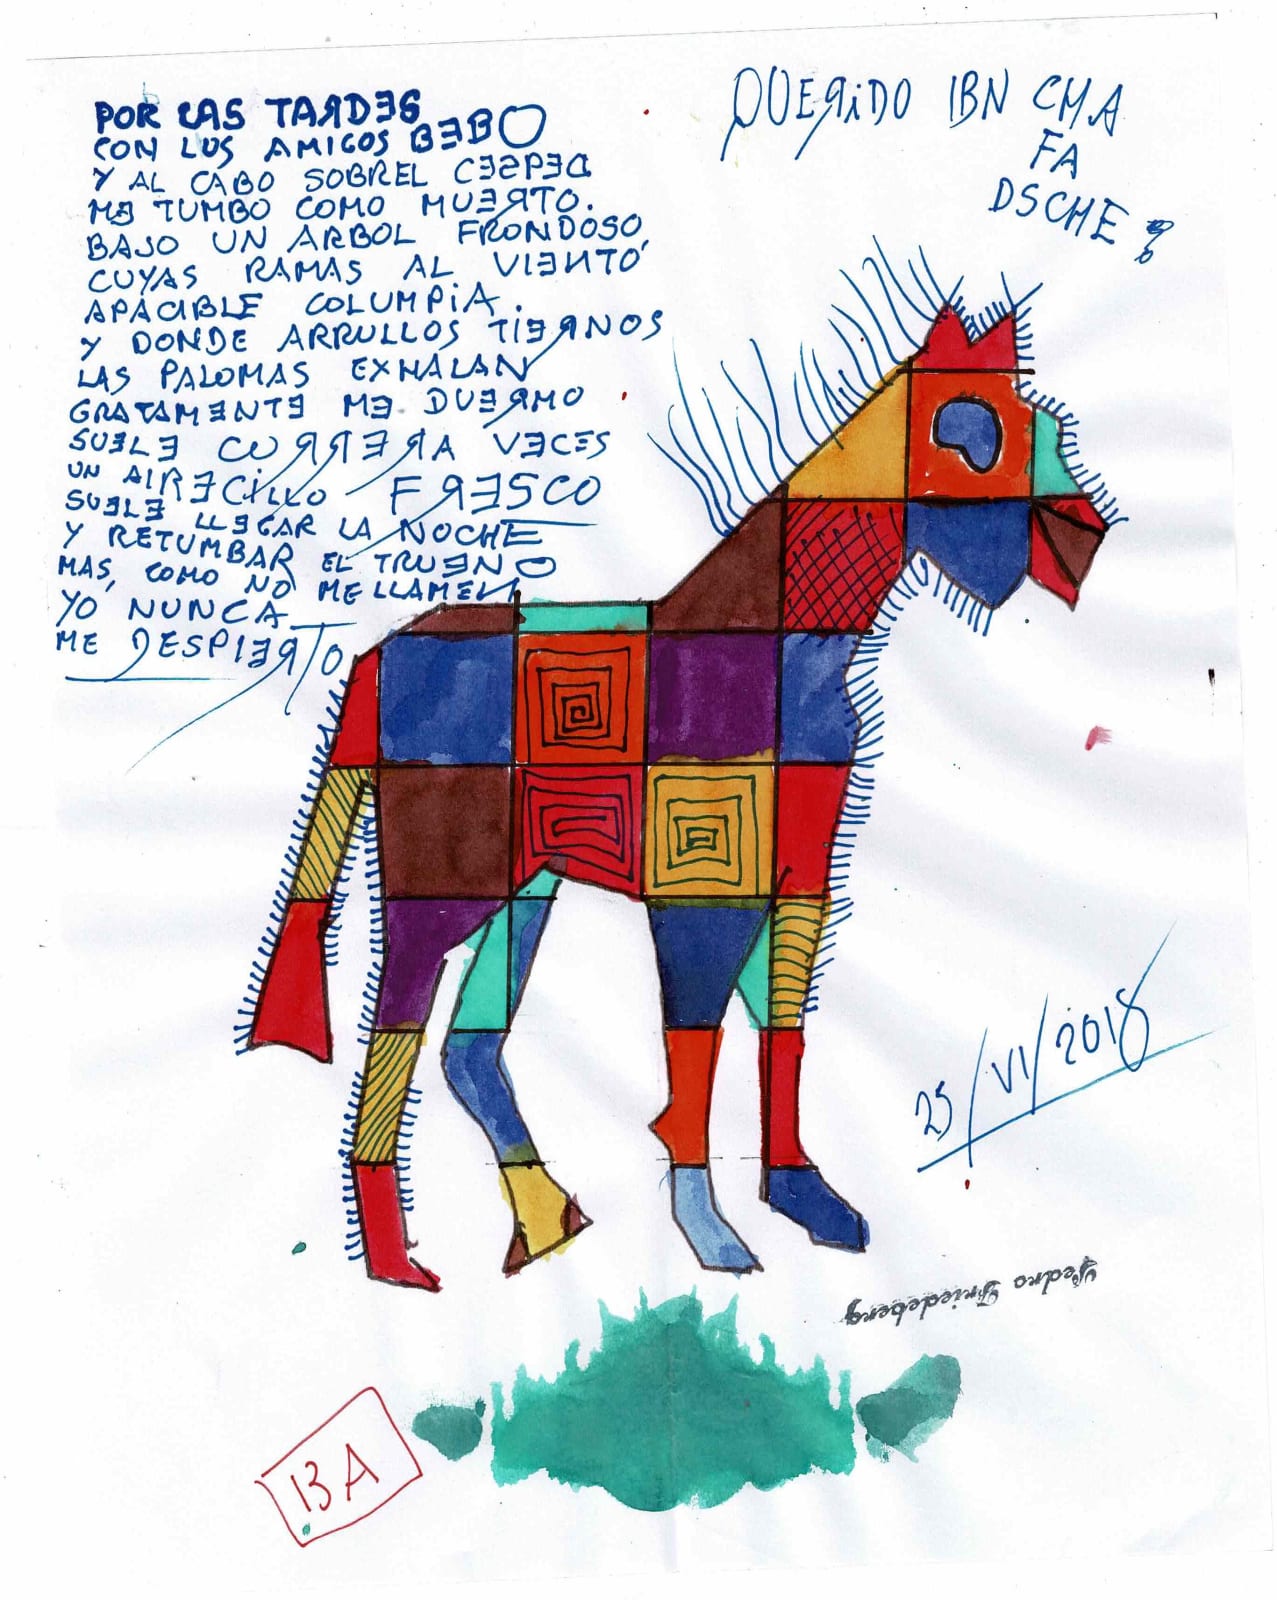 POR LAS TARDES
CON LOS AMIGOS BEBO
Y AL CABO SOBREL CESPED
ME TUMBO COMO MUERTO.
BAJO UN ARBOL FRONDOSO,
CUYAS RAMAS AL VIENTO
APACIBLE COLUMPIA.
Y DONDE ARRULLOS TIERNOS
LAS PALOMAS EXHALAN
GRATAMENTE ME DUERMO
SUELE CORRER A VECES
UN AIRECILLO FRESCO
SUELE LLEGAR LA NOCHE
Y RETUMBAR EL TRUENO
MAS, COMO NO ME LLAMEN
YO NUNCA
ME DESPIERTO
QUERIDO IBN CMA
FA
DSCHE
25/VI/2018
Pedro Friedeberg
13A